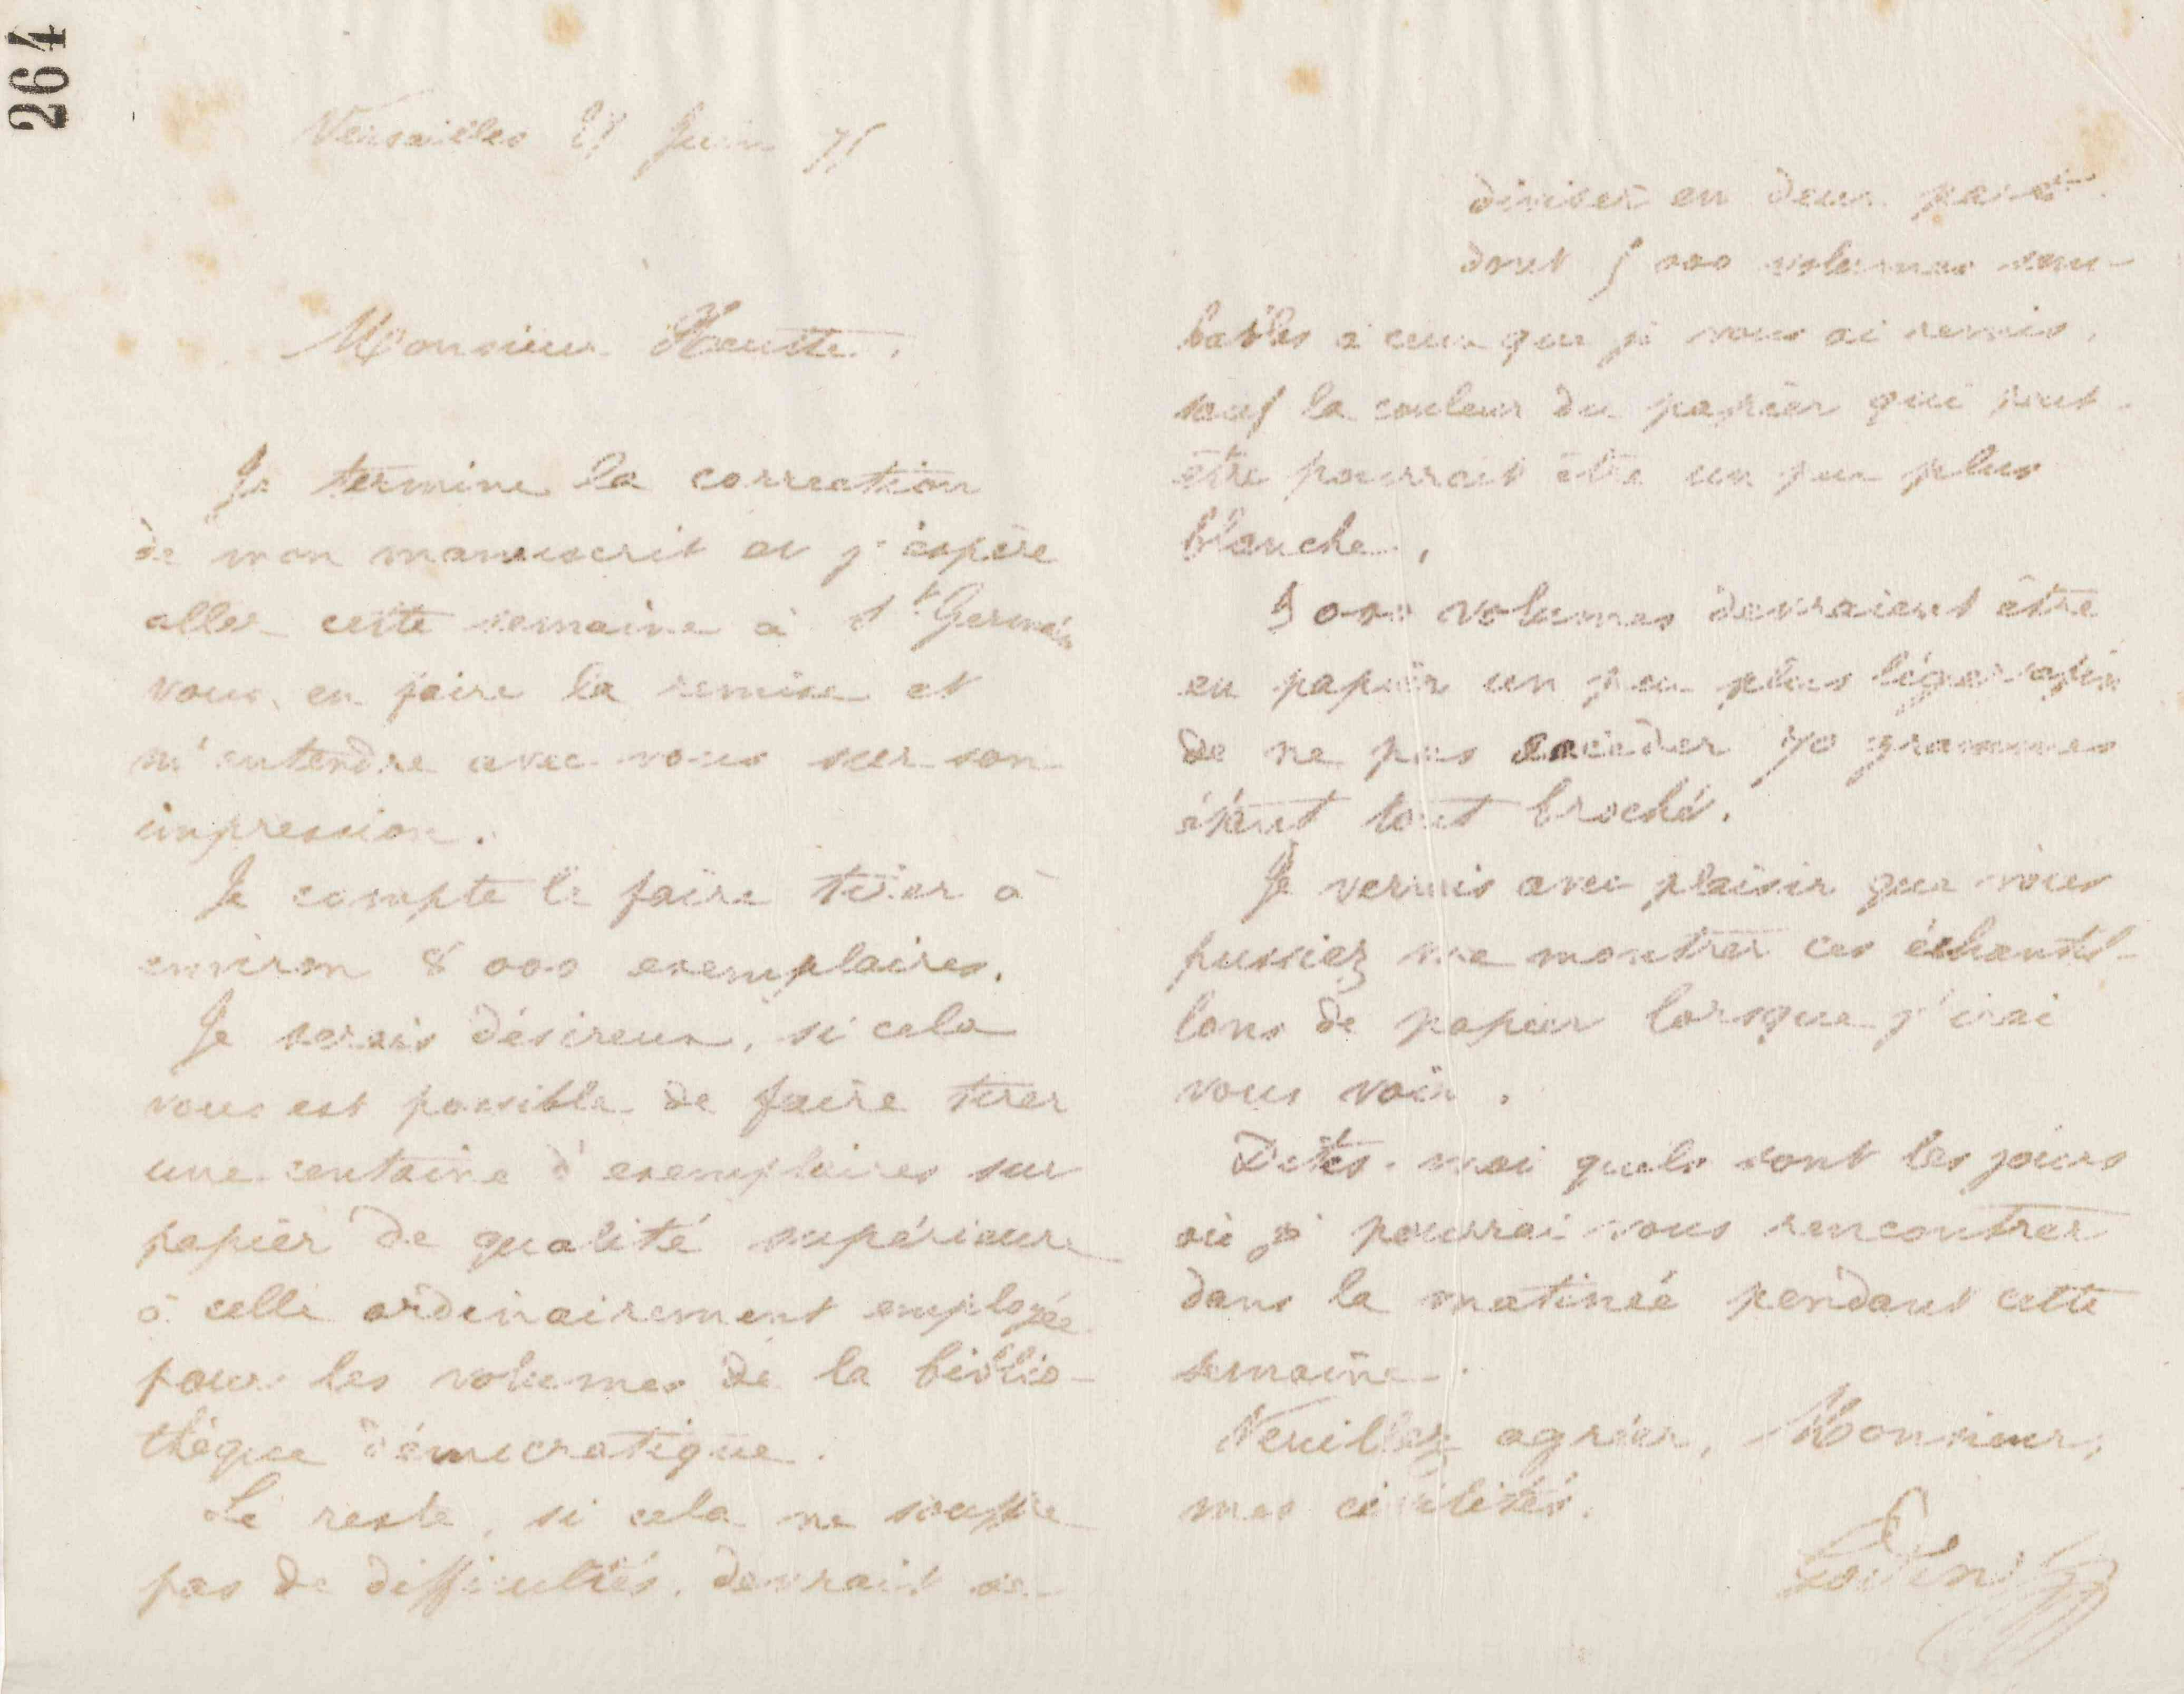 264
Versailles 27 Juin 75
Monsieur
Je termine la correction
de mon manuscrit et j'espère
aller cette semaine à St Germain
vous en faire la remise et
m'entendre avec vous sur son
impression.
Je compte le faire tirer à
environ 8 000 exemplaires.
Je serais désireux, si cela
vous est possible de faire tirer
une centaine d'exemplaires sur
papier de qualité supérieure
à celle ordinairement employée
pour les volumes de la biblio-
thèque démocratique.
Le reste, si cela ne souffre
pas de difficultés, devrait se
diviser en deux parts
dont 5 000 volumes sem-
bables à ceux que je vous ai remis,
sauf la couleur du papier qui peut-
être pourrait être un peu plus
blanche,
3 000 volumes devraient être
en papier un peu plus léger afin
de ne pas excéder 70 grammes
étant tout broché.
Je verrais avec plaisir que vous
pussiez me montrer ces échantil-
lons de papier lorsque j'irai
vous voir.
Dites-moi quels sont les jours
où je pourrai vous rencontrer
dans la matinée pendant cette
semaine.
Veuillez agréer, Monsieur,
mes civilités.
Godin